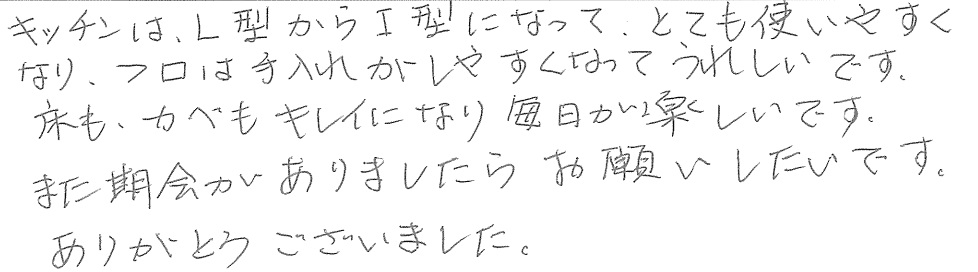 キッチンは、L型からI型になって、とても使いやすく
なり、フロは手入れがしやすくなってうれしいです。
床も、カベもキレイになり毎日が楽しいです。
また期会がありましたらお願いしたいです。
ありがとうございました。